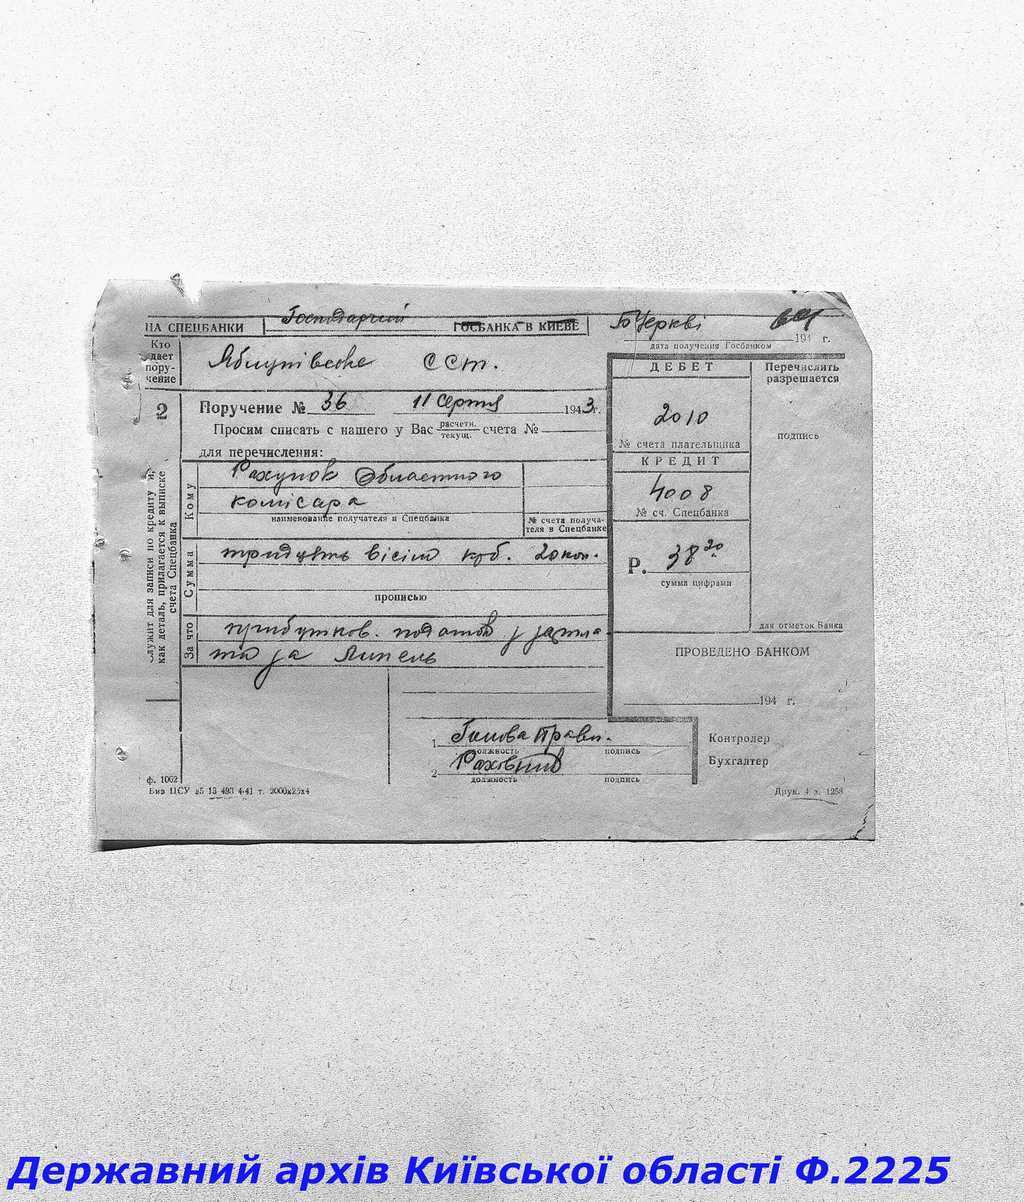 НА СПЕЦБАНКИ Господарчий ГОСБАНКА В КИЕВЕ БЦеркві
дата получения Госбанком 194 г.
Кто дает пору-чение
Яблунівське ССТ.
2
Поручение № 36 11 Серпня 1943 г.
Просим списать с нашего у Вас расчетн. текущ. счета №
для перечисления:
Кому
Рахунок Обласного
комісара
наименование получателя и Спецбанка
№ счета получа-теля в Спецбанке
Сумма
тридцять вісім крб. 20 коп.
прописью
За что
прибутков. податок з зарпла
та за Липень
служит для записи по кредиту и,
как деталь, прилагается к выписке
счета Спецбанка
ДЕБЕТ
2010
№ счета плательщика
КРЕДИТ
4008
№ сч. Спецбанка
Р. 38 20
сумма цифрами
Перечислить
разрешается
подпись
для отметок Банка
ПРОВЕДЕНО БАНКОМ
194 г.
1 Голова Правл.
должность подпись
2 Раховник
должность подпись
Контролер
Бухгалтер
ф. 1002
Друк. 4 з. 1258
Державний архів Київської області Ф.2225